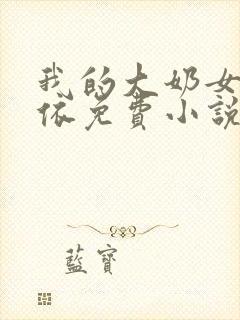 我的大奶女
依免費小說
藍寶